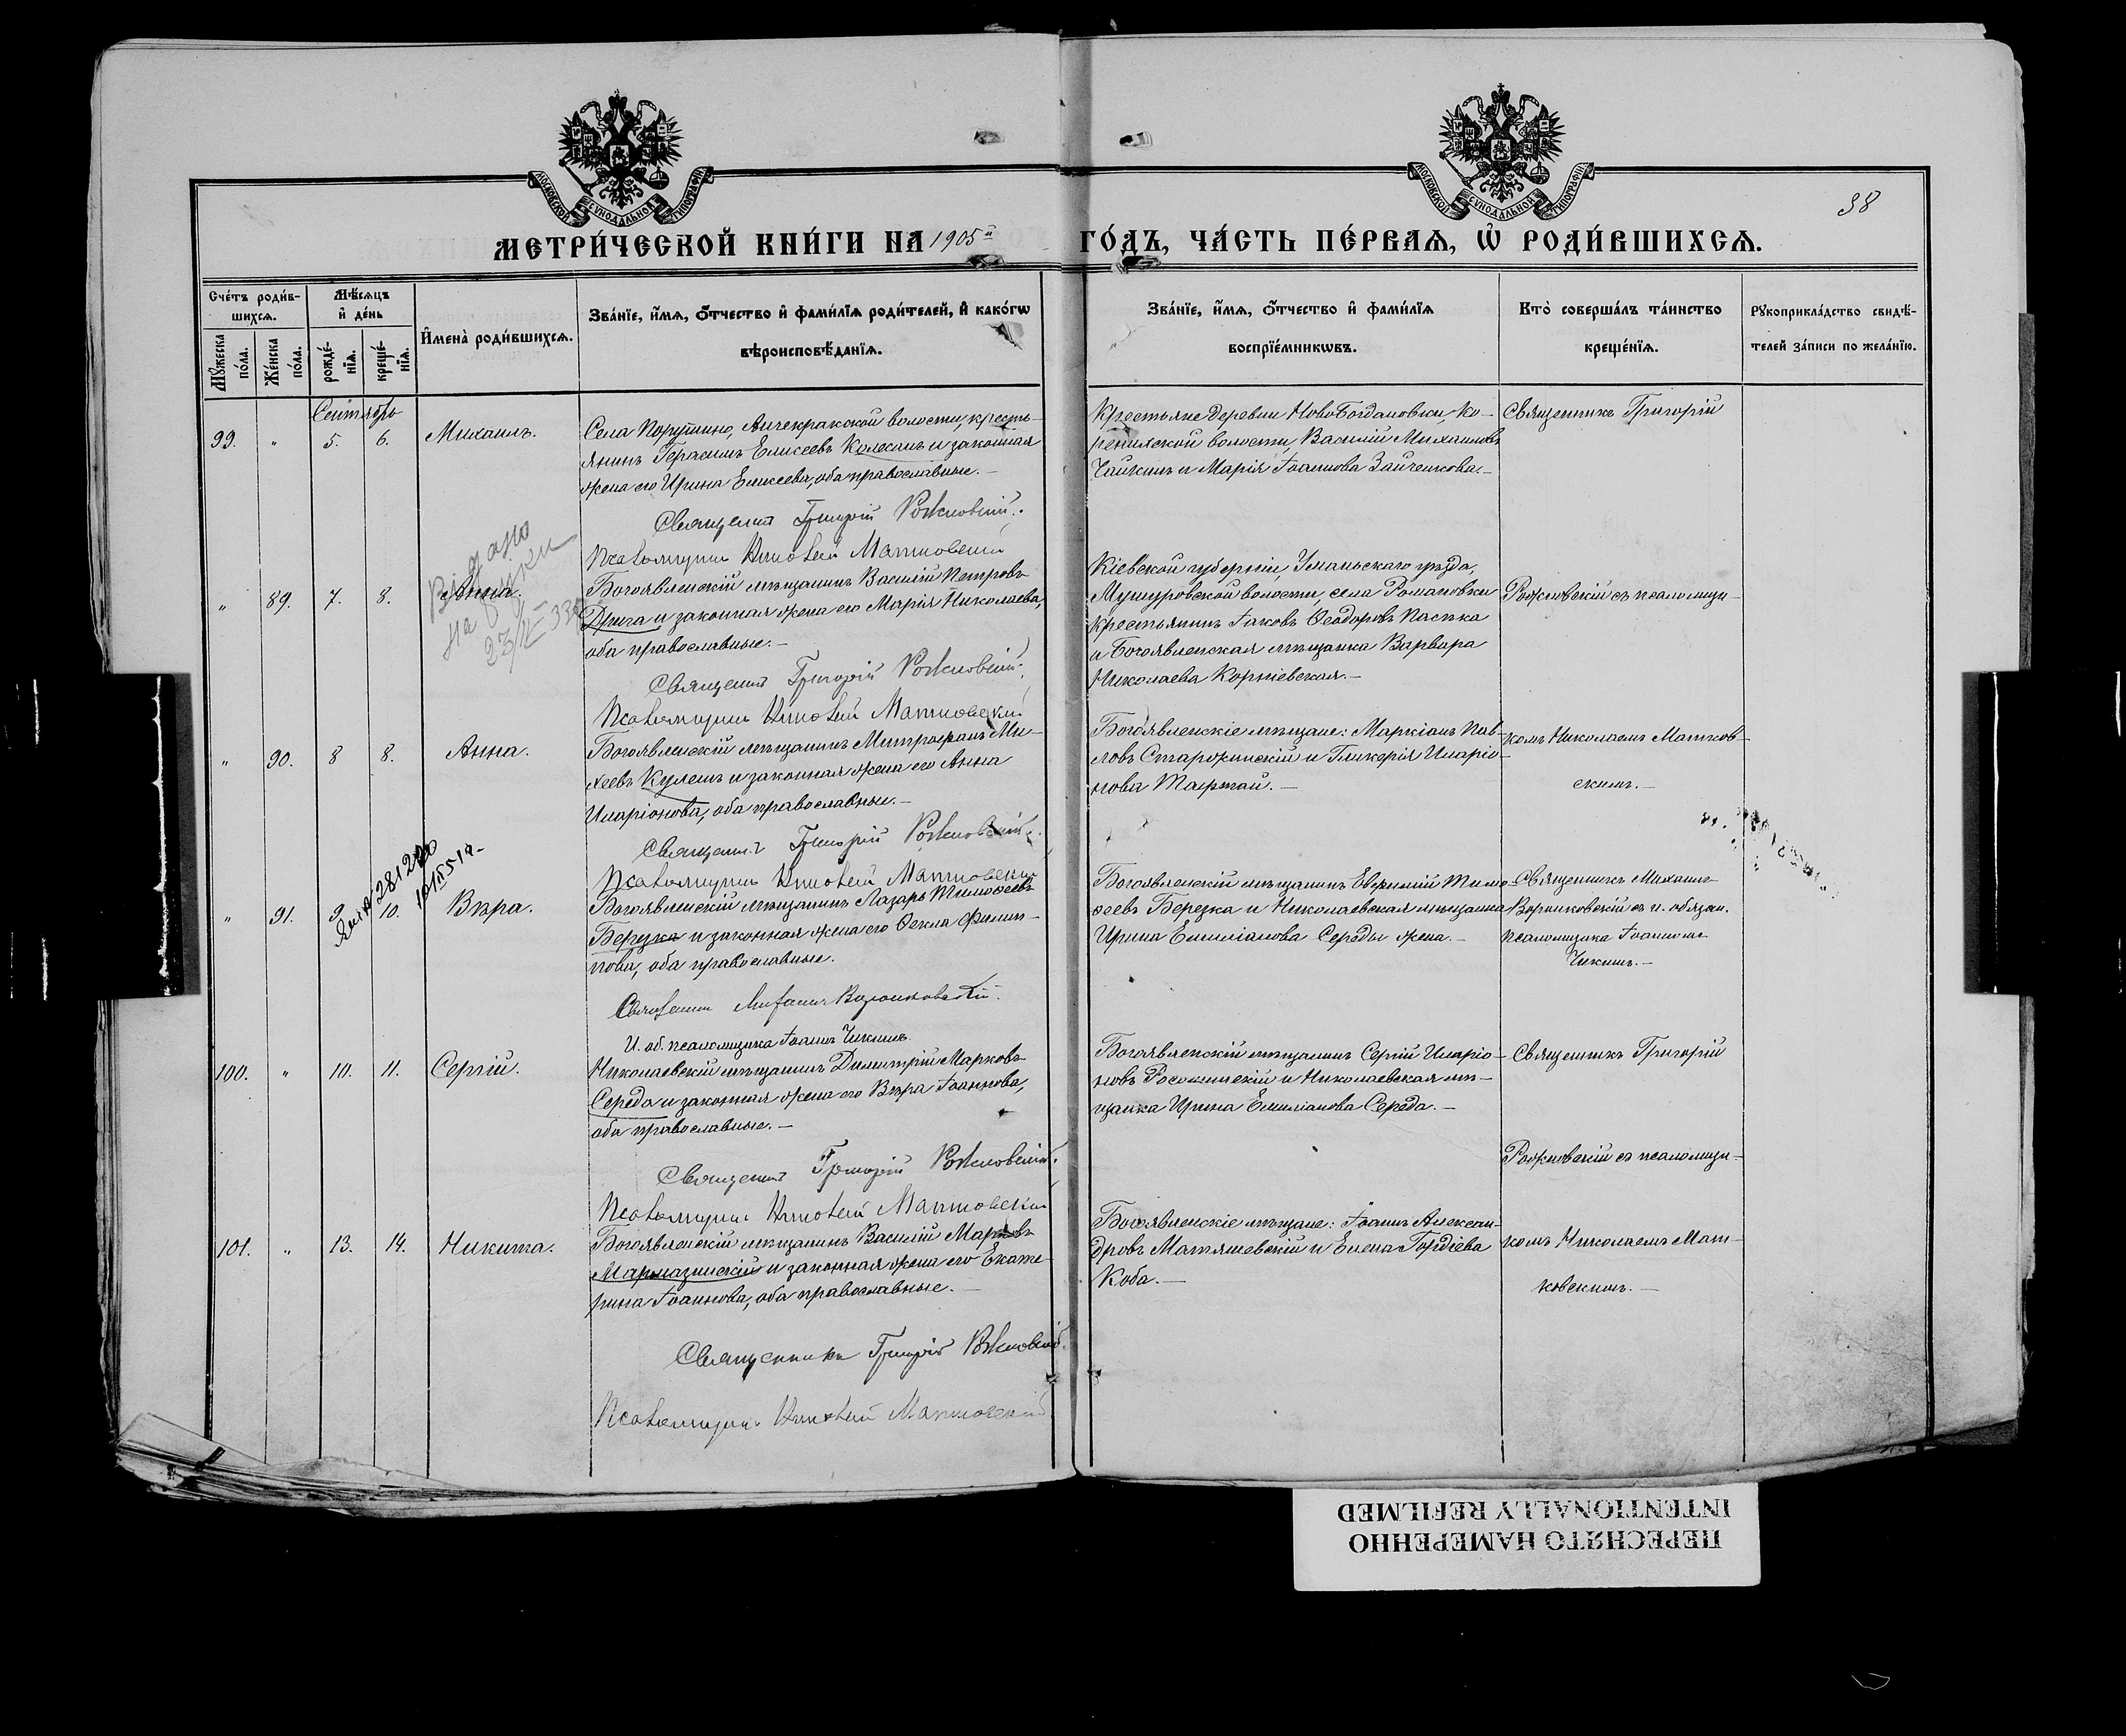 МОСКОВСКОЙ СѴНОДАЛЬНОЙ ТИПОГРАФІИ
МОСКОВСКОЙ СѴНОДАЛЬНОЙ ТИПОГРАФІИ
38
МЕТРИ́ЧЕСКОЙ КНИ́ГИ НА 1905й ГО́ДЪ, ЧА́СТЬ ПЕ́РВАѦ, Ѽ РОДИ́ВШИХСѦ.
Сче́тъ роди́в-
шихсѧ.
Мꙋ́жеска по́ла.
Же́нска по́ла.
Мѣ́сѧцъ и҆ де́нь
рожде́-нїѧ.
креще́-нїѧ.
И҆мена̀ роди́вшихсѧ.
Зва́нїе, и҆́мѧ, ѻ҆́тчество и҆ фами́лїѧ роди́телей, и҆ како́гѡ
вѣроисповѣ́данїѧ.
Зва́нїе, и҆́мѧ, ѻ҆́тчество и҆ фами́лїѧ
воспрїе́мникѡвъ.
Кто̀ соверша́лъ та́инство
креще́нїѧ.
Рꙋкоприкла́дство свидѣ́-
телей за́писи по жела́нїю.
Сентябрь
99. " 5. 6. Михаилъ.
Села Порутино, Анчекракской волости, кресть-
янинъ Герасимъ Елисеевъ Колесанъ и законная
жена его Ирина Елисеева, оба православные.-
Священник Григорій Рожновскій.
Псаломщикъ Николай Матковскій
Крестьяне деревни НовоБогдановки, Ко-
ренихской волости, Василій Михаиловъ
Чайкинъ и Марія Іоаннова Зайченкова.-
Священникъ Григорій
Видано
на руки
23/II 33
" 89. 7. 8. Анна.
Богоявленскій мѣщанинъ Василій Петровъ
Дрига и законная жена его Марія Николаева,
оба православные.-
Священник Григорій Рожновскій.
Псаломщикъ Николай Матковскій
Кіевской губерніи, Уманьскаго уѣзда,
волости, села Романовки
крестьянинъ Іаковъ Ѳеодоровъ Пасѣка
и Богоявленская мѣщанка Варвара
Николаева Корніевская.-
Рожновскій съ псаломщи-
" 90. 8 8. Анна.
Богоявленскій мѣщанинъ Митрофанъ Ми-
хеевъ Кулешъ и законная жена его Анна
Иларіонова, оба православные.-
Священник Григорій Рожновскій.
Псаломщикъ Николай Матковскій
Богоявленскіе мѣщане: Маркіанъ Пав-
ловъ Старожинскій и Гликерія Иларіо-
нова Тафтай.-
комъ Николаемъ Матков-
скимъ.-
" 91. 9. 10. Вѣра.
Богоявленскій мѣщанинъ Лазарь Тимоѳеевъ
Березка и законная жена его Ѳекла Филип-
пова, оба православные.
Священник Михаилъ Воронковскій.
И. об. псаломщика Іоаннъ Чикинъ.
Богоявленскій мѣщанинъ Евфимій Тимо-
ѳеевъ Березка и Николаевская мѣщанка
Ирина Емиліанова Середы жена.-
Священникъ Михаилъ
Воронковскій съ и. обязан.
псаломщика Іоанномъ
Чикинъ.-
100. " 10. 11. Сергій.
Николаевскій мѣщанинъ Димитрій Марковъ
Середа и законная жена его Вѣра Іоаннова,
оба православные.-
Священник Григорій Рожновскій.
Псаломщикъ Николай Матковскій
Богоявленскій мѣщанинъ Сергій Иларіо-
новъ и Николаевская мѣ-
щанка Ирина Емиліанова Середа.-
Священникъ Григорій
Рожновскій съ псаломщи-
101. " 13. 14. Никита.
Богоявленскій мѣщанинъ Василій Марковъ
Мармазинскій и законная жена его Екате-
рина Іоаннова, оба православные.-
Священникъ Григорій Рожновскій.
Псаломщикъ Николай Матковскій
Богоявленскіе мѣщане: Іоаннъ Алексан-
дровъ Матяшевскій и Елена Гордіева
Коба.-
комъ Николаемъ Мат-
ковскимъ.-
ПЕРЕСНЯТО НАМЕРЕННО
INTENTIONALLY REFILMED